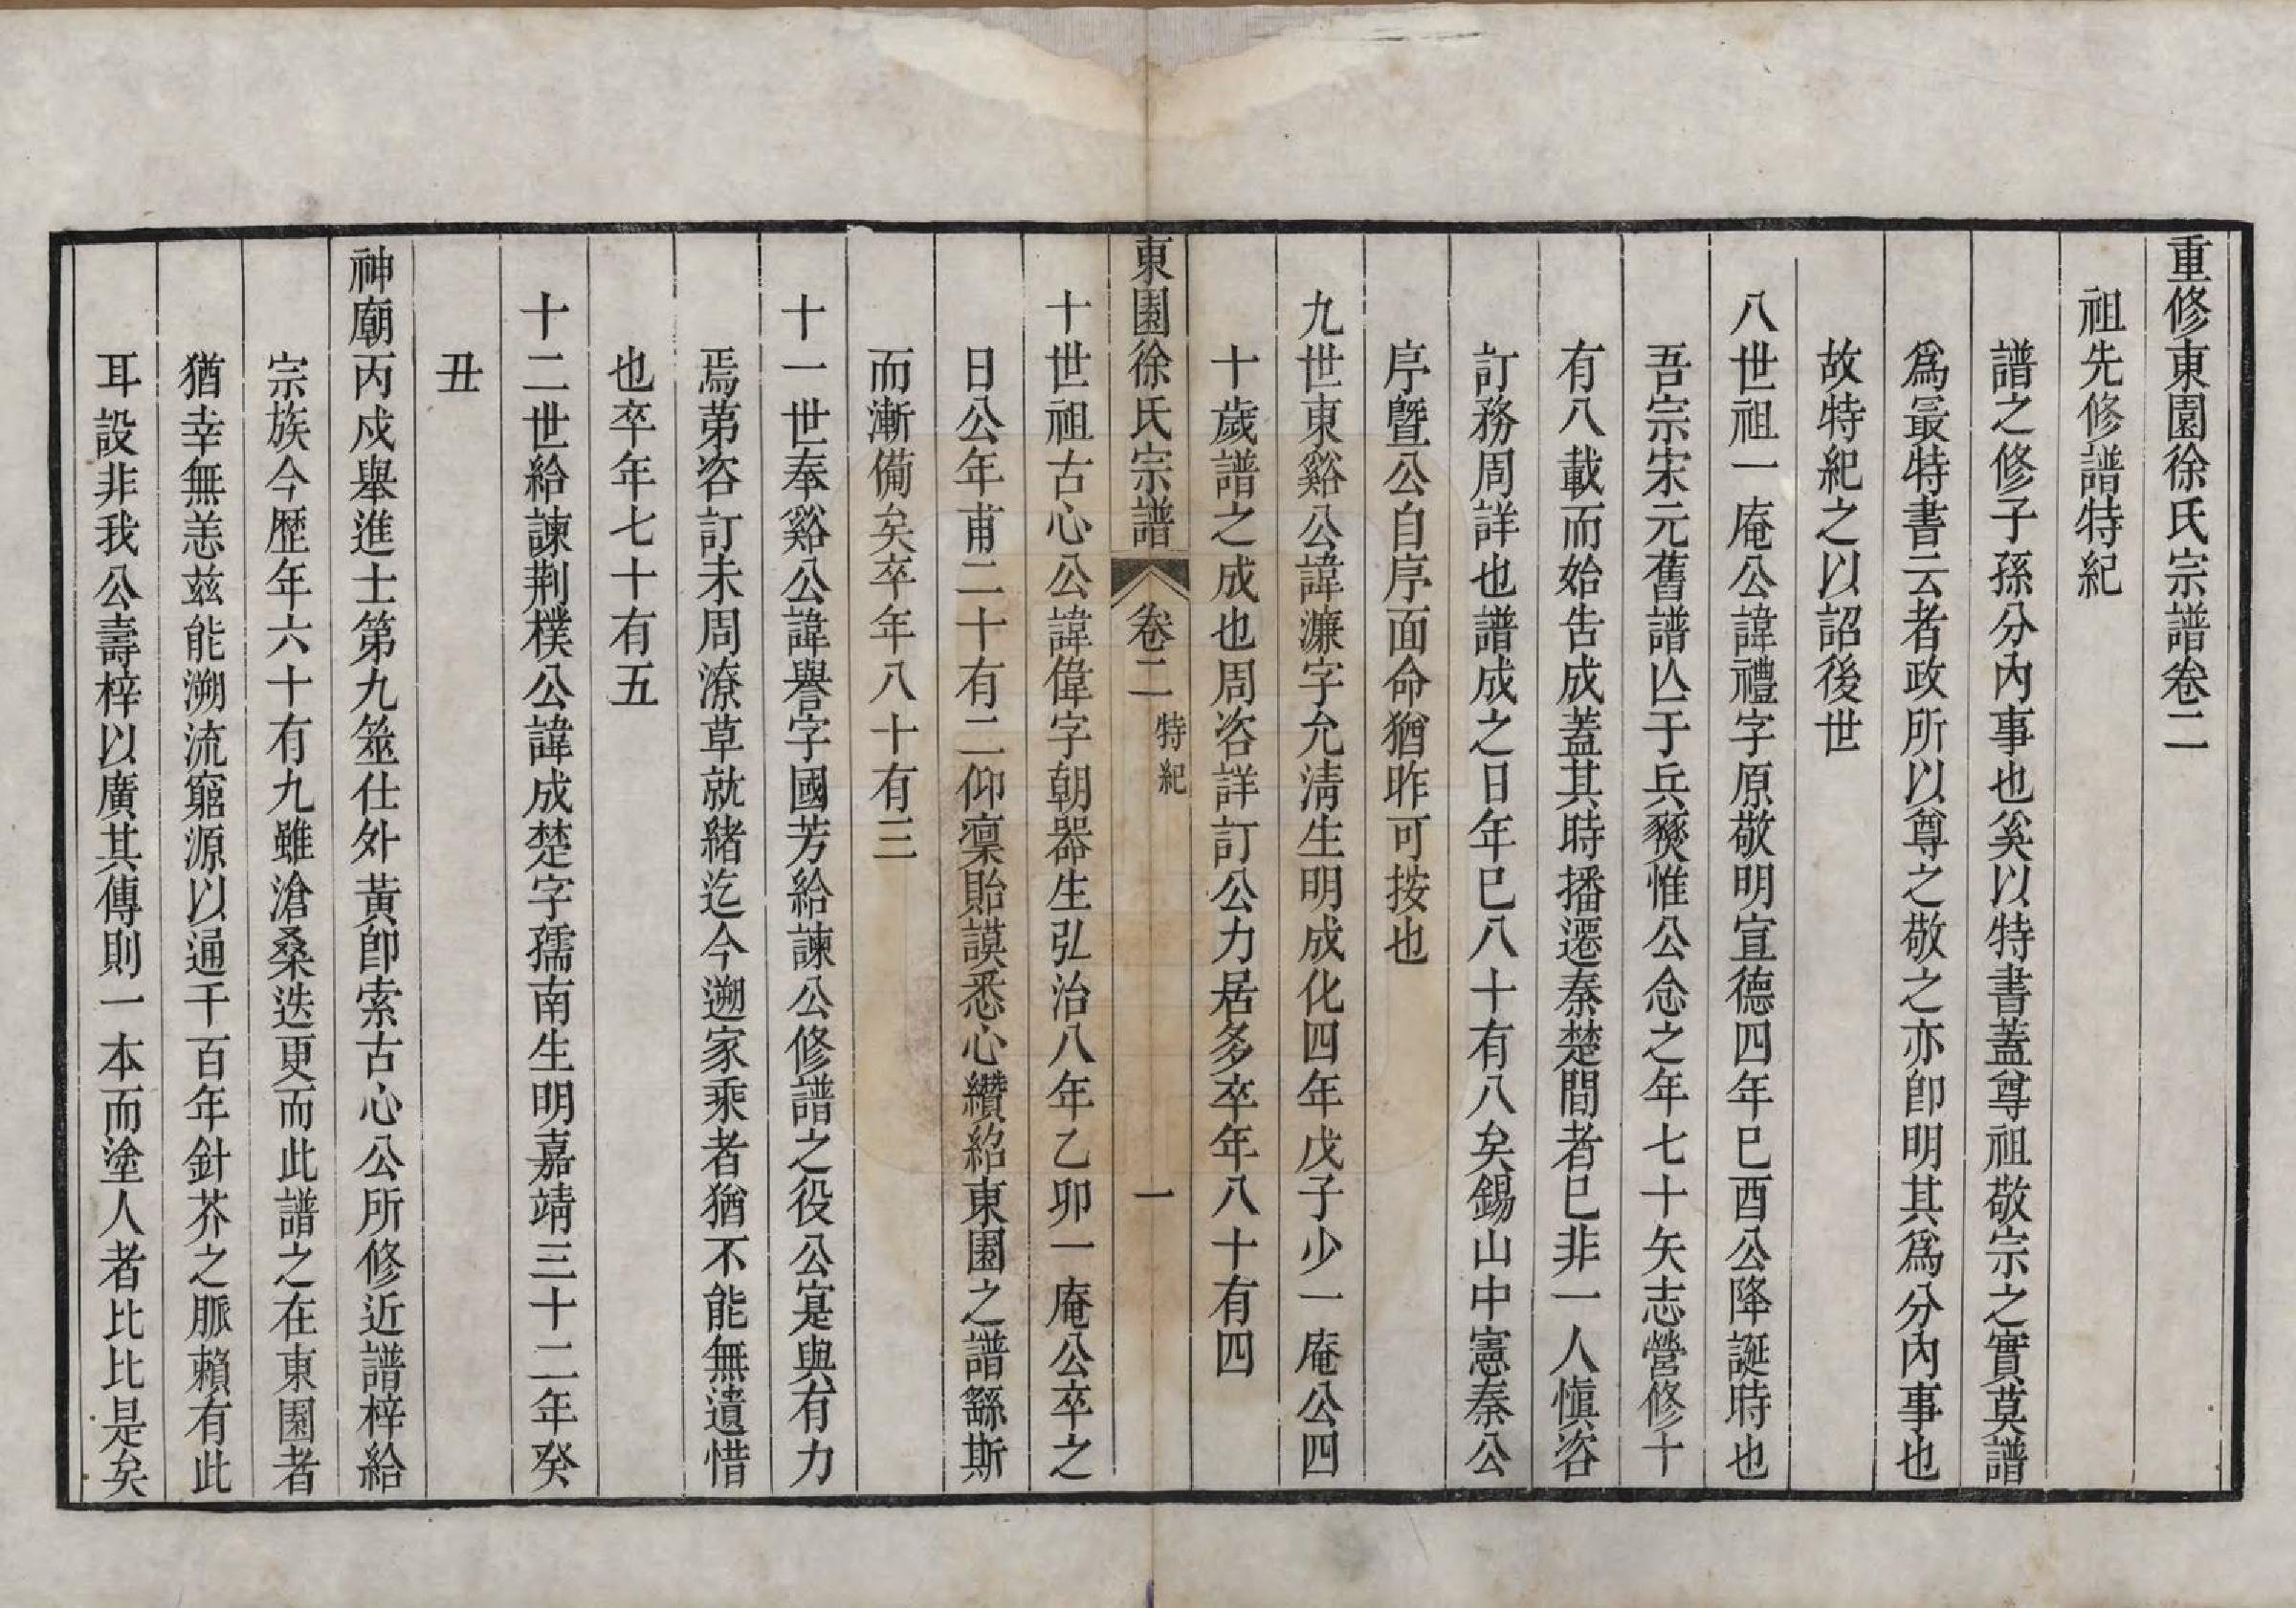 重修東園徐氏宗譜卷二
祖先修譜特紀
譜之修子孫分內事也奚以特書蓋尊祖敬宗之實莫譜
爲最特書云者政所以尊之敬之亦卽明其爲分內事也
故特紀之以詔後世
八世祖一庵公諱禮字原敬明宣德四年巳酉公降誕時也
吾宗宋元舊譜亾于兵燹惟公念之年七十矢志營修十
有八載而始告成蓋其時播遷秦楚間者已非一人愼咨
訂務周詳也譜成之日年已八十有八矣錫山中憲秦公
序曁公自序面命猶昨可按也
九世東谿公諱濂字允淸生明成化四年戊子少一庵公四
十歲譜之成也周咨詳訂公力居多卒年八十有四
東園徐氏宗譜 卷二 特紀 一
十世祖古心公諱偉字朝器生弘治八年乙卯一庵公卒之
日公年甫二十有二仰凜貽謨悉心纘紹東園之譜繇斯
而漸備矣卒年八十有三
十一世奉谿公諱譽字國芳給諫公修譜之役公寔與有力
焉第咨訂未周潦草就緒迄今遡家乘者猶不能無遺惜
也卒年七十有五
十二世給諫荆樸公諱成楚字孺南生明嘉靖三十二年癸
丑
神廟丙戍舉進士第九筮仕外黃卽索古心公所修近譜梓給
宗族今歷年六十有九雖滄桑迭更而此譜之在東園者
猶幸無恙兹能溯流窮源以通千百年針芥之脈賴有此
耳設非我公壽梓以廣其傳則一本而塗人者比比是矣